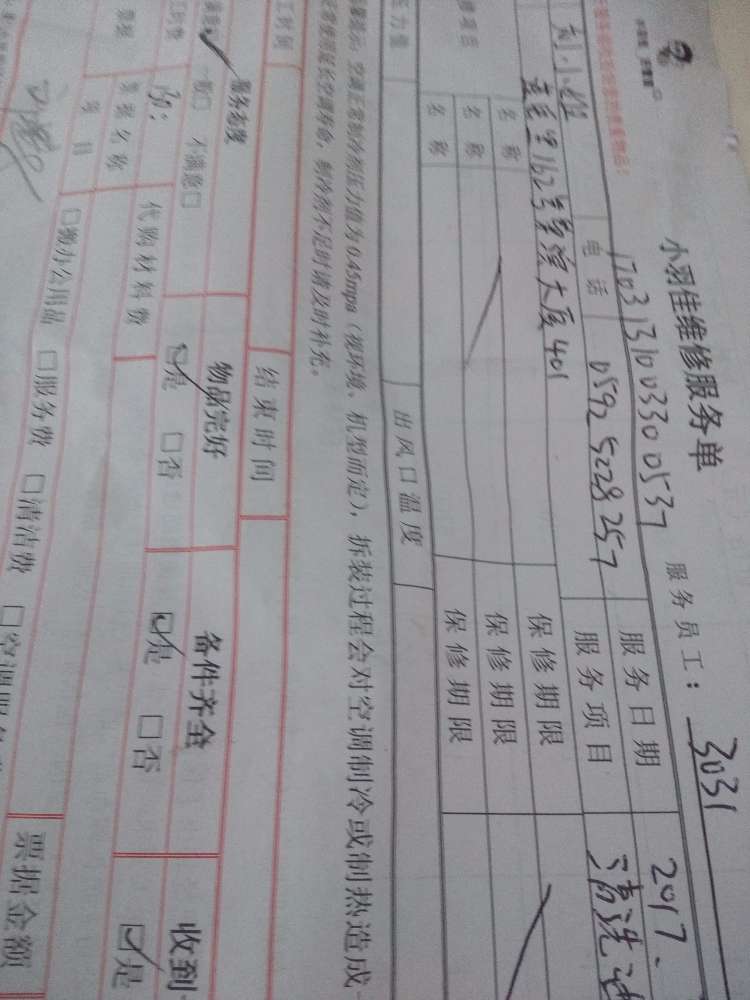 小羽佳维修服务单
服务员工：3031
170313100330 0537
服务日期 2017.
刘小姐 电话 0592 5228257 服务项目 清洗
162号 大厦401
名称 保修期限
名称 保修期限
名称 保修期限
压力量 出风口温度
空调正常制冷剂压力值为0.45mpa（视环境、机型而定），拆装过程会对空调制冷或制热造成
正常使用延长空调寿命，制冷剂不足时请及时补充。
工时间 结束时间
服务态度 物品完好 备件齐全 收到
满意 一般□ 不满意□ □是 □否 □是 □否 □是
工时费 代购材料费
票据
票据名称
项目 □办公用品 □服务费 □清洁费 票据金额